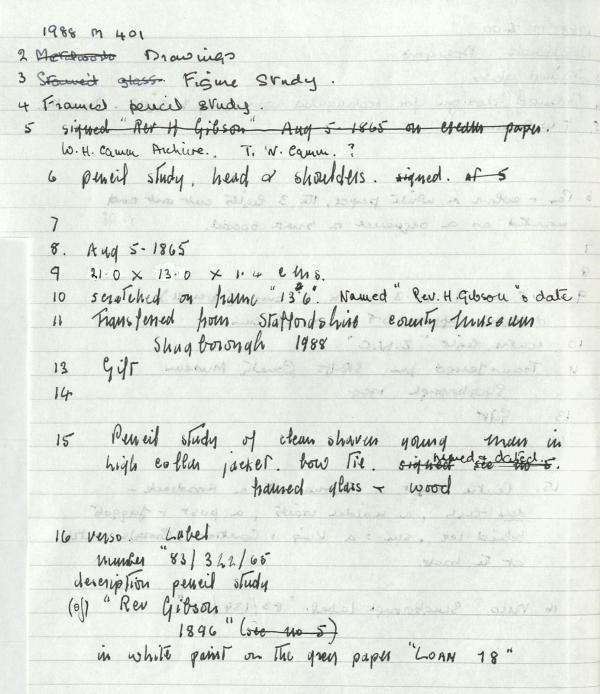 1988 M 401
2 Metalwork Drawings
3 Stained glass Figure Study.
4 Framed pencil study.
5 signed "Rev H Gibson" Aug 5-1865 on cream paper.
W.H. Camm Archive. T. W. Camm. ?
6 pencil study, head & shoulders. signed. of 5
7
8. Aug 5-1865
9 21.0 x 13.0 x 1.4 cms.
10 scratched on frame "13"6". Named "Rev. H. Gibson" & date
11 Transferred from Staffordshire county museum
Shugborough 1988
13 Gift
14
15 Pencil study of clean shaven young man in
high collar jacket. bow tie. signed see no 5. named & dated.
framed glass & wood
16 verso. Label
number "83/322/65
description pencil study
(of) "Rev Gibson
1896" (see no 5)
in white paint on the grey paper "LOAN 18"